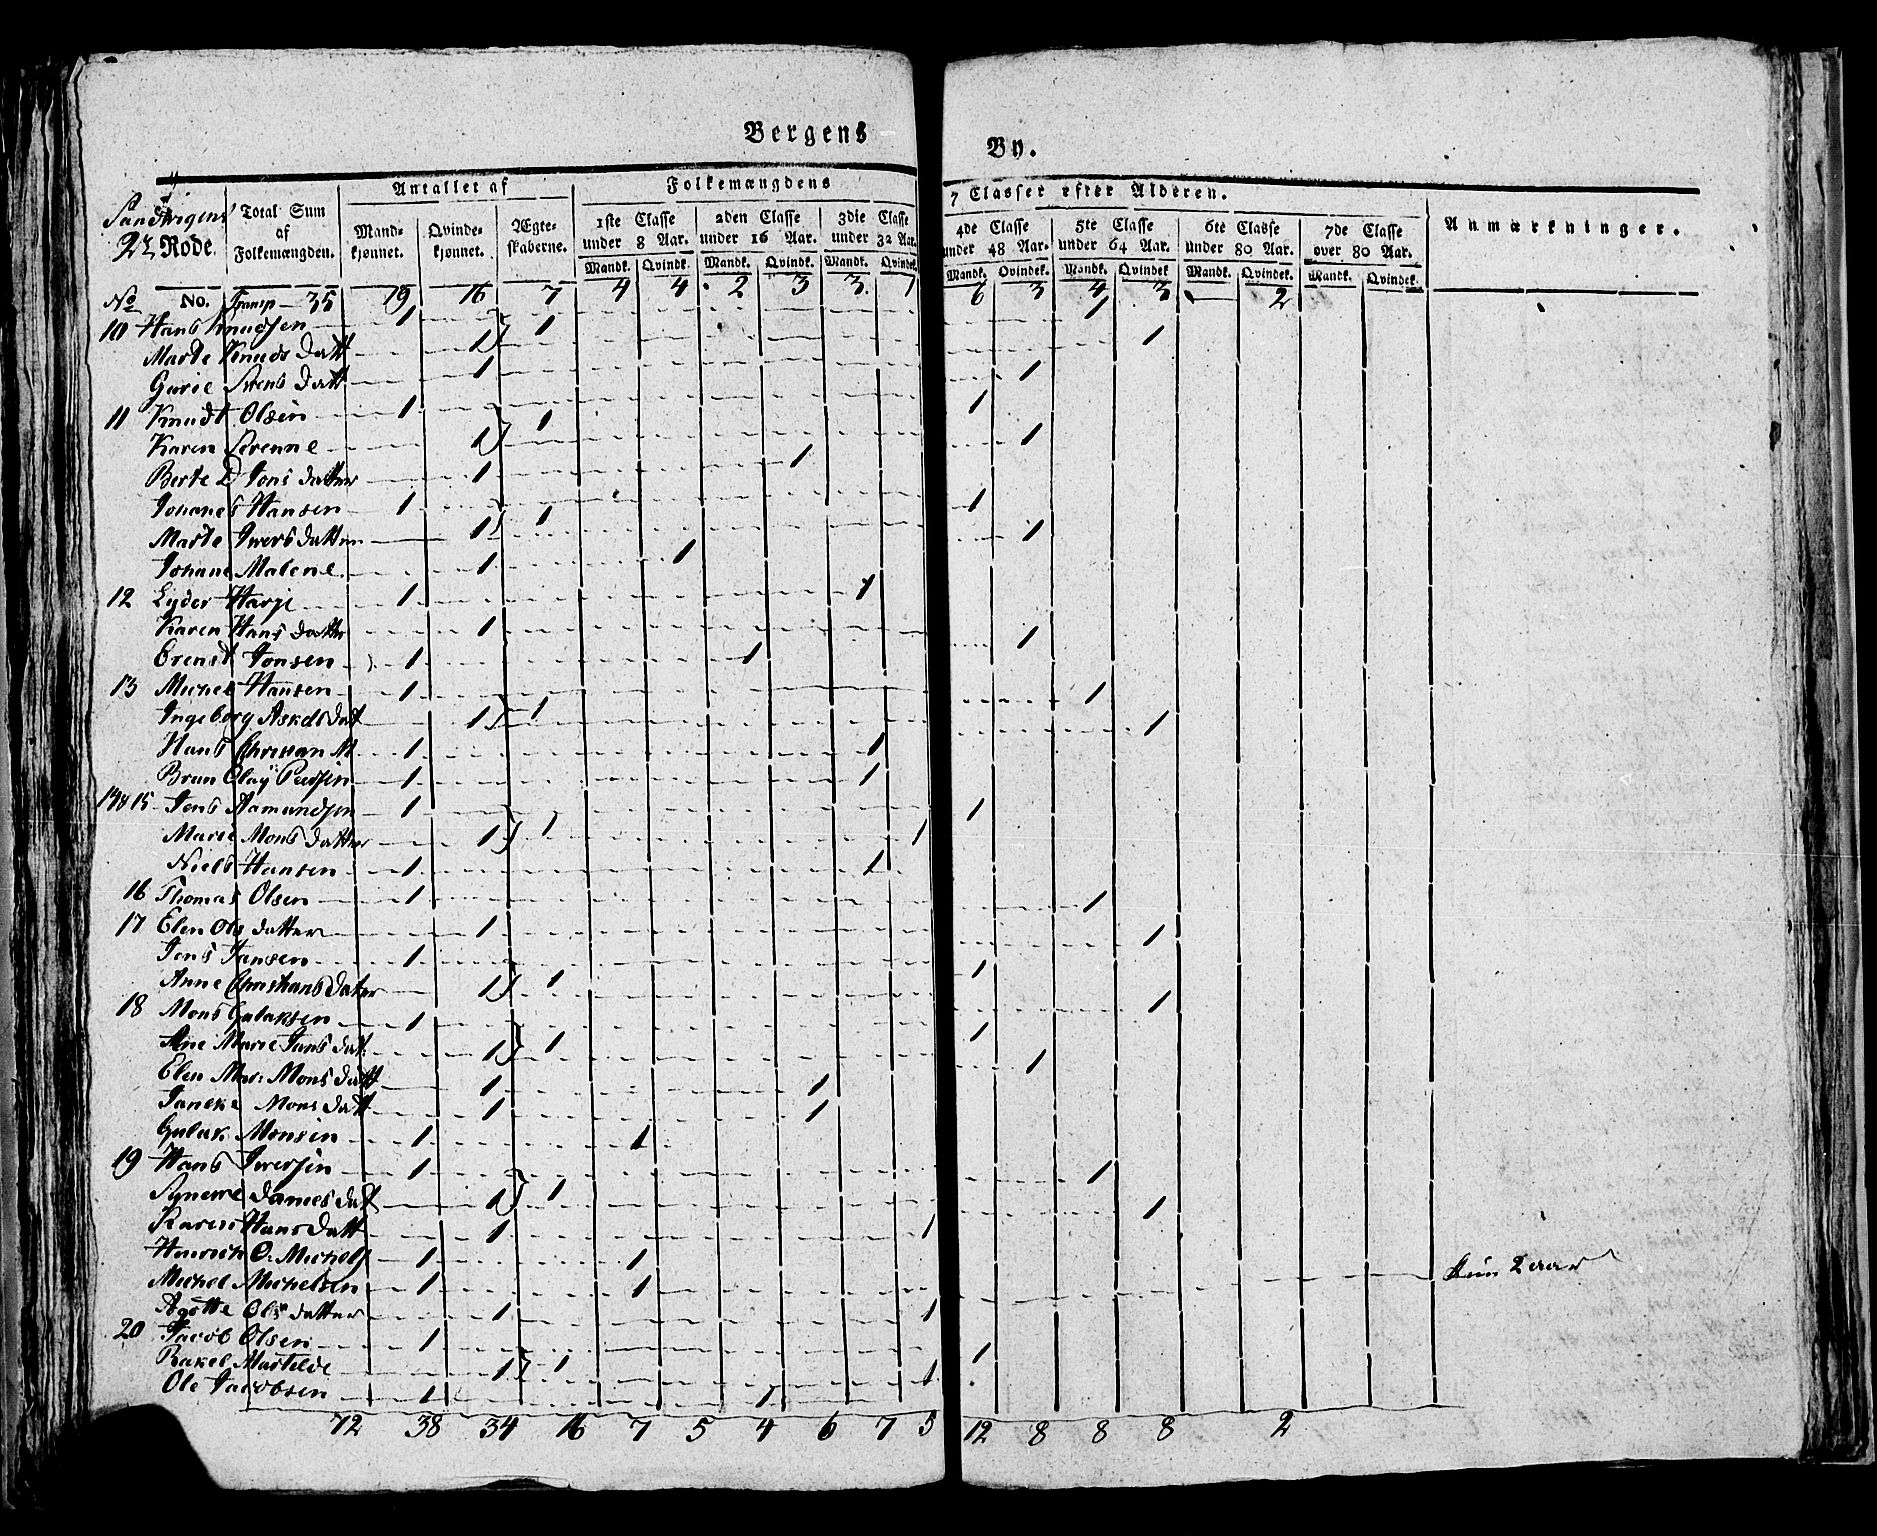 Bergens By.
Sandvigens 2de Rode.
Total Sum af Folkemængden.
Antallet af
Mandkjønnet. Qvindekjønnet. Ægteskaberne.
Folkemængdens 7 Classer efter Alderen.
1ste Classe under 8 Aar. 2den Classe under 16 Aar. 3die Classe under 32 Aar. 4de Classe under 48 Aar. 5te Classe under 64 Aar. 6te Classe under 80 Aar. 7de Classe over 80 Aar.
Anmærkninger.
Mandk. Qvindek. Mandk. Qvindek. Mandk. Qvindek. Mandk. Qvindek. Mandk. Qvindek. Mandk. Qvindek. Mandk. Qvindek.
No No. Transp 35 19 16 7 4 4 2 3 3 1 6 3 4 3 2
10 Hans Knudsen 1 1 1
Marte Knuds Datt 1 1
Gurie Sivens Datt 1 1
11 Knudt Olsen 1 1 1
Karen Serenne 1 1
Berte D Jons datter 1 1
Johanes Hansen 1 1 1
Marte Iversdatter 1 1
Johane Malene 1 1
12 Lyder Harje 1 1
Karen Hans datter 1 1
Erenst Jonsen 1 1
13 Michel Hansen 1 1
Ingeborg Askels dat 1 1 1
Hans Christian M 1 1
Brun Olay Pedersen 1 1
14 & 15 Jens Aamundsen 1 1
Marie Mons datter 1 1 1
Niels Hansen 1 1
16 Thomas Olsen 1 1
17 Elen Ols datter 1 1
Jens Jansen 1 1
Anne Christians dater 1 1 1
18 Mons Gulaksen 1 1
Ane Marie Jans dat: 1 1 1
Elen Mar: Mons datt 1 1
Janeke Mons datt 1 1
Gulak Monsen 1 1
19 Hans Iversen 1 1
Synewe Danies datt 1 1 1
Karen Hans Datt 1 1
Henrich O: Michels 1 1
Michel Michelsen 1 1 kun 2 aar
Agotte Ols datter 1 1
20 Jacob Olsen 1 1
Rakel Martelde 1 1 1
Ole Jacobsen 1 1
72 38 34 16 7 5 4 6 7 5 12 8 8 8 2